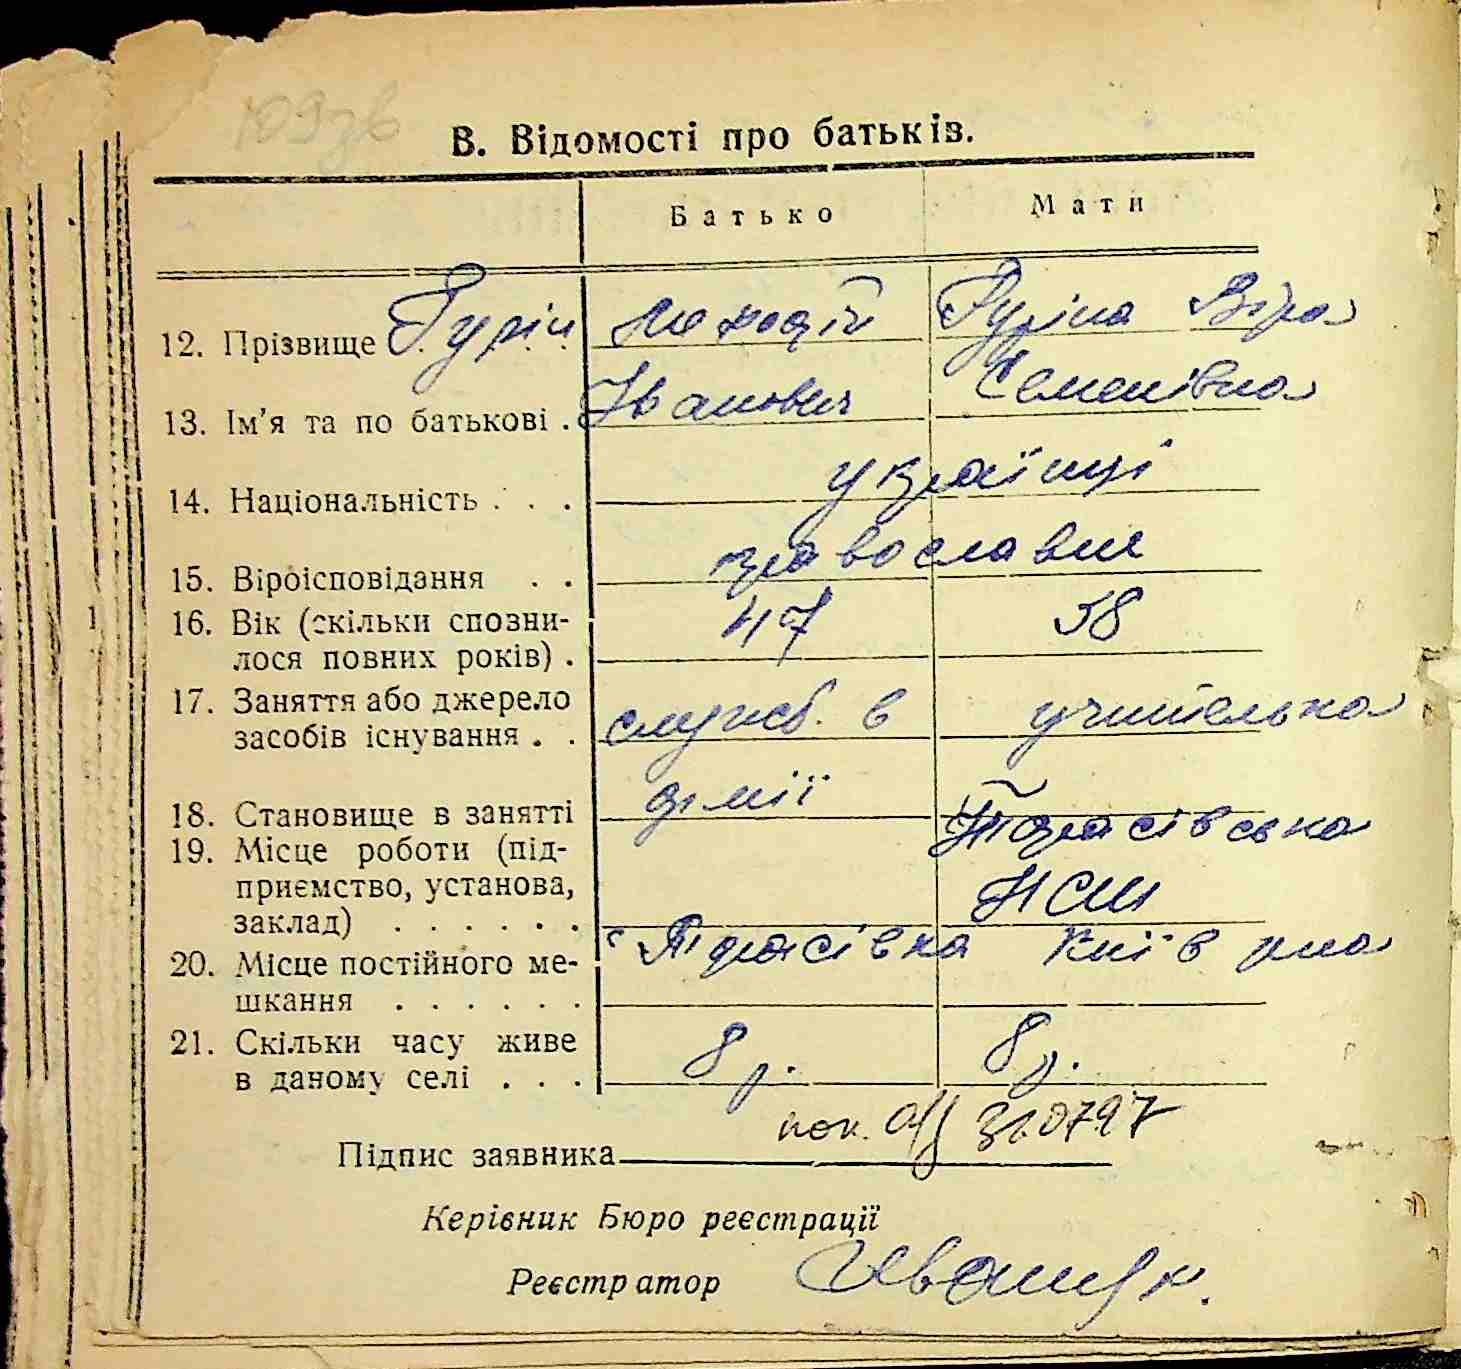 109зв
В. Відомості про батьків.
Батько Мати
12. Прізвище Гурін Мефодій Гуріна Віра
13. Ім’я та по батькові . Іванович Семенівна
14. Національність . . . українці
15. Віроісповідання . . православні
16. Вік (скільки спозни-
лося повних років) . 47 38
17. Заняття або джерело
засобів існування . . служб. в учителька
18. Становище в занятті армії
19. Місце роботи (під-
приємство, установа,
заклад) . . . . . . НСШ
20. Місце постійного ме-
шкання . . . . . . Київ р на
21. Скільки часу живе
в даному селі . . . 8 р. 8 р.
Підпис заявника пок. 310797
Керівник Бюро реєстрації
Реєстратор